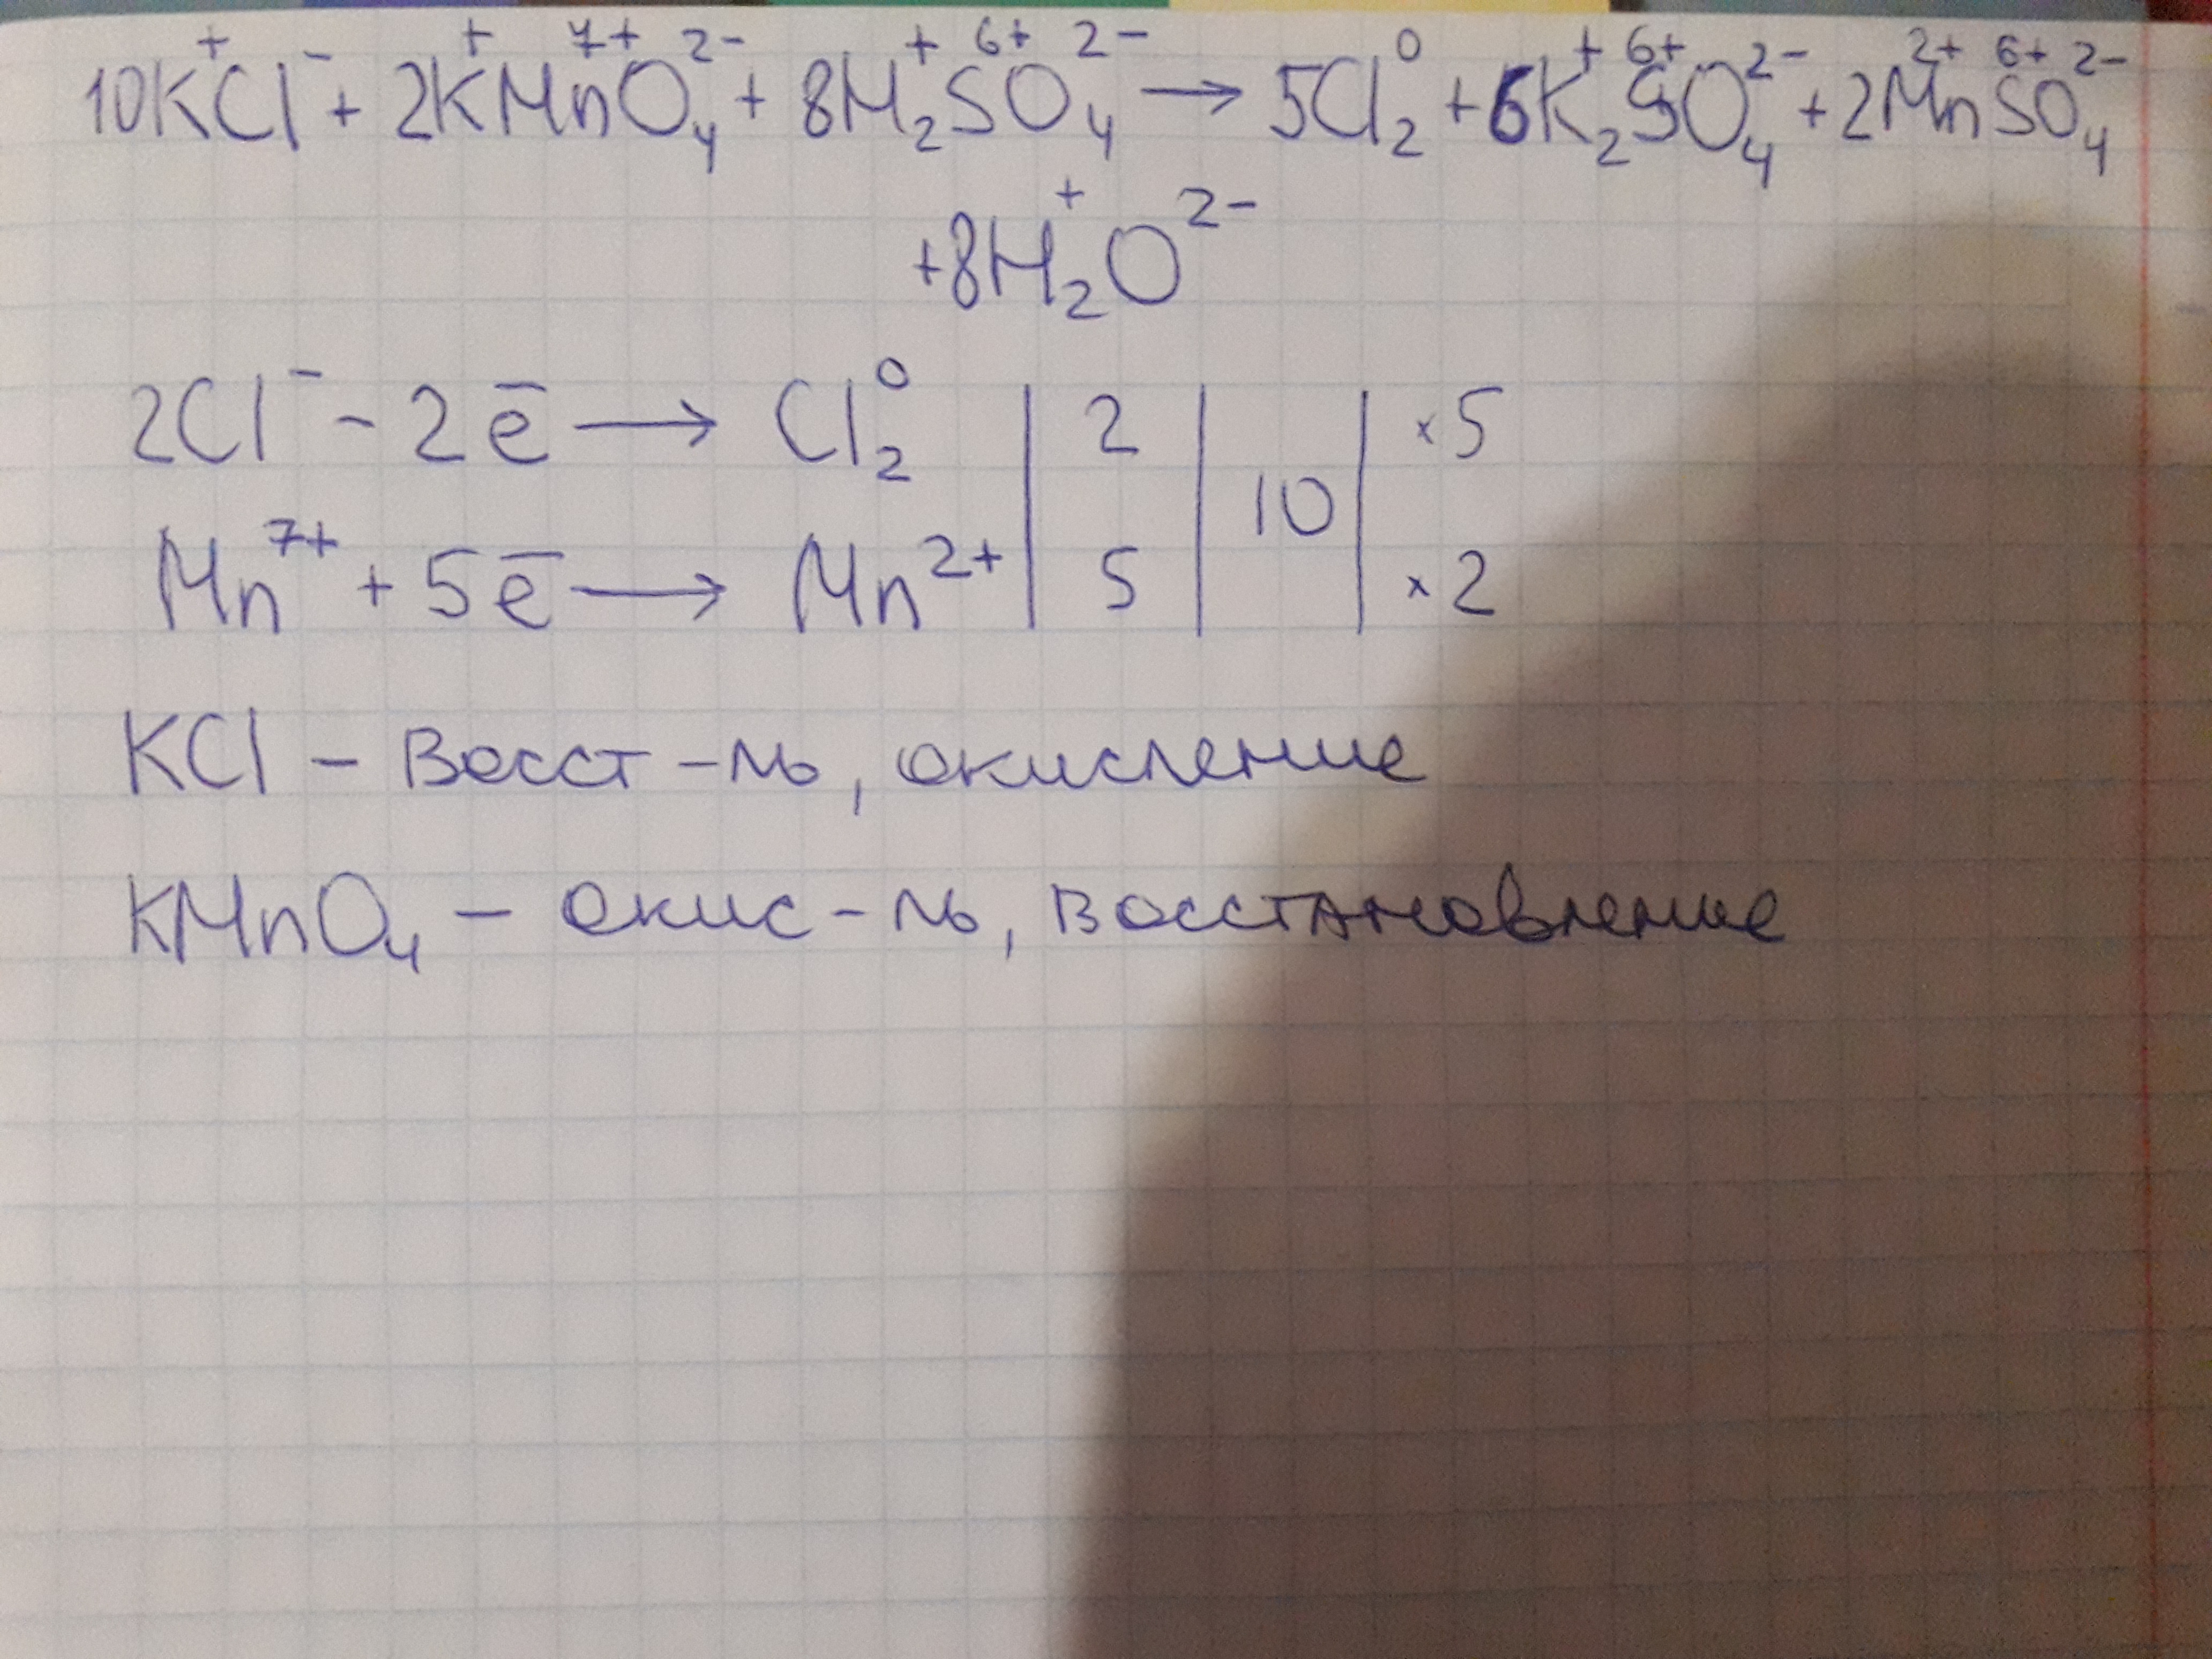 10K⁺Cl⁻ + 2K⁺Mn⁷⁺O₄²⁻ + 8H₂⁺S⁶⁺O₄²⁻ → 5Cl₂⁰ + 6K₂⁺S⁶⁺O₄²⁻ + 2Mn²⁺S⁶⁺O₄²⁻
+8H₂⁺O²⁻
2Cl⁻ - 2ē → Cl₂⁰ | 2 | 10 | ×5
Mn⁷⁺ + 5ē → Mn²⁺ | 5 | | ×2
KCl – Восст-ль, окисление
KMnO₄ – окис-ль, восстановление